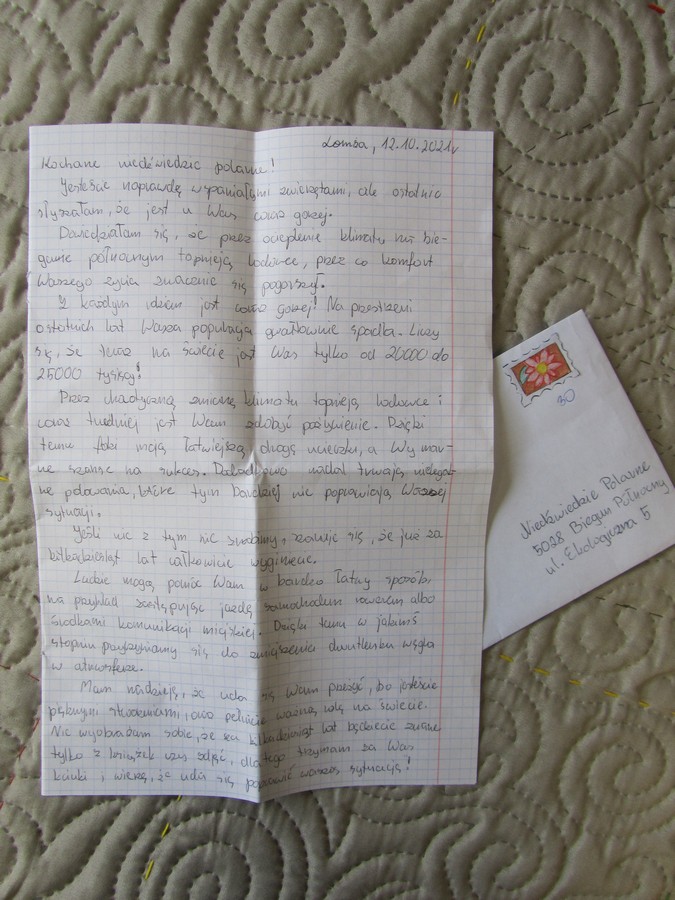 Łomża, 12.10.2021r
Kochane niedźwiedzie polarne!
Jesteście naprawdę wspaniałymi zwierzętami, ale ostatnio
słyszałam, że jest u Was coraz gorzej.
Dowiedziałam się, że przez ocieplenie klimatu na bie-
gunie północnym topnieją lodowce, przez co komfort
Waszego życia znacznie się pogorszył.
Z każdym dniem jest coraz gorzej! Na przestrzeni
ostatnich lat Wasza populacja gwałtownie spadła. Liczy
się, że teraz na świecie jest Was tylko od 20000 do
25000 tysięcy!
Przez chaotyczną zmianę klimatu topnieją lodowce i
coraz trudniej jest Wam zdobyć pożywienie. Dzięki
temu foki mają łatwiejszą drogę ucieczki, a Wy mar-
ne szanse na sukces. Dodatkowo nadal trwają nielegal-
ne polowania, które tym bardziej nie poprawiają Waszej
sytuacji.
Jeśli nic z tym nie zrobimy, szacuje się, że już za
kilkadziesiąt lat całkowicie wyginiecie.
Ludzie mogą pomóc Wam w bardzo łatwy sposób,
na przykład zastępując jazdę samochodem rowerem albo
środkami komunikacji miejskiej. Dzięki temu w jakimś
stopniu przyczynimy się do zmniejszenia dwutlenku węgla
w atmosferze.
Mam nadzieję, że uda się Wam przeżyć, bo jesteście
pięknymi stworzeniami, oraz pełnicie ważną rolę na świecie.
Nie wyobrażam sobie, że za kilkadziesiąt lat będziecie znane
tylko z książek czy zdjęć, dlatego trzymam za Was
kciuki i wierzę, że uda się poprawić waszą sytuację!
30
Niedźwiedzie Polarne
5028 Biegun Północny
ul. Ekologiczna 5